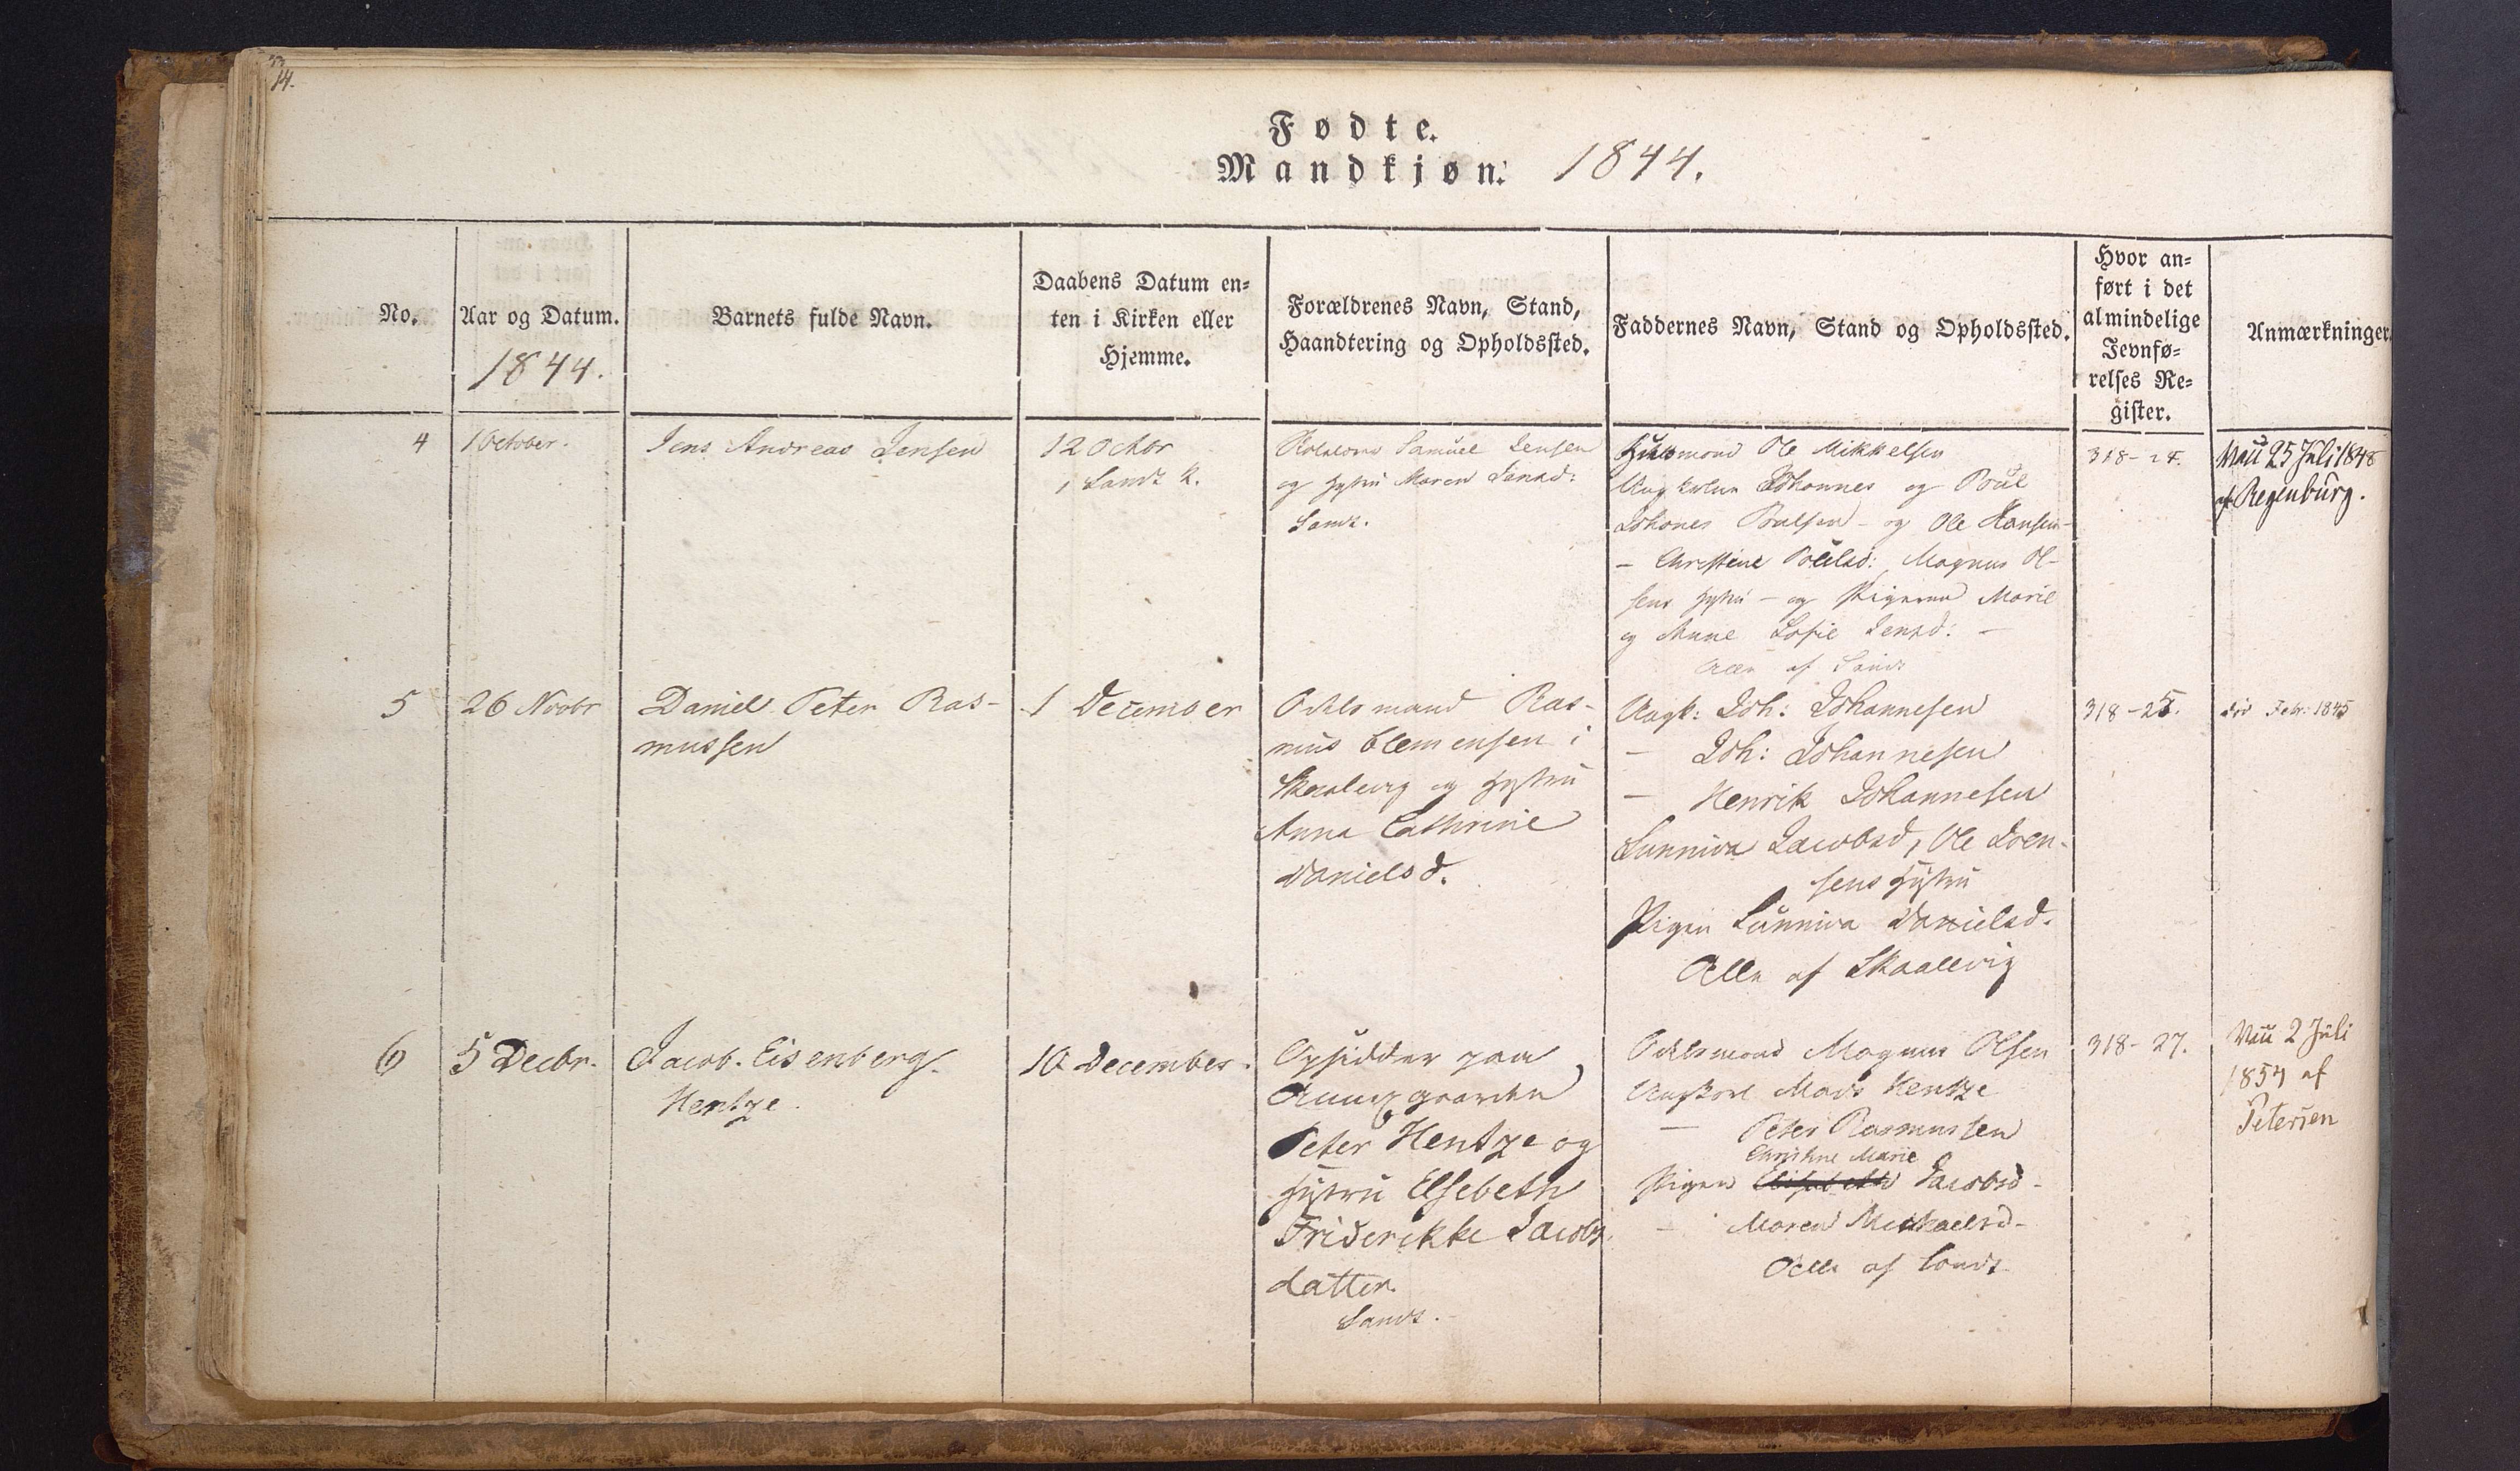 14.
Fødte.
Mandkjøn. 1844.
No.
Aar og Datum.
1844.
Barnets fulde Navn.
Daabens Datum en-
ten i Kirken eller
Hjemme.
Forældrenes Navn, Stand,
Haandtering og Opholdssted.
Faddernes Navn, Stand og Opholdssted.
Hvor an-
ført i det
almindelige
Jevnfø-
relses Re-
gister.
Anmærkninger.
4
1 October.
Jens Andreas Jensen
12 Octbr
i Sands K.
Samuel Jensen
og Hustru Maren
Sands.
Huusmand Ole Mikkelsen
Ungkarlene Johannes og Poul
Johannes Poulsen - og Ole Hansen -
- Christine Poulsd: Magnus Ol-
sens Hustru - og Pigerne Marie
og Anne Sofie Jensd: -
Alle af Sands
318-24.
Vacc 25 Juli 1848
af Regenburg.
5
26 Novbr
Daniel Peter Ras-
mussen
1 December
Odelsmand Ras-
mus Clemensen i
Skaalevig og Hustru
Anna Cathrine
Danielsd.
Ungk: Joh: Johannesen
- Joh: Johannesen
- Henrik Johannesen
Sunniva Jacobsd, Ole Joen-
sens Hustru
Pigen Sunniva Danielsd.
Alle af Skaallevig
318-25.
død Febr: 1845
6
5 Decbr.
Jacob Eisenberg
Hentze.
10 December.
Opsidder paa
Annexgaarden
Peter Hentze og
Hustru Elsebeth
Friderikke Jacobs
datter.
Sands.
Odelsmand Magnus Olsen
Ungkarl Mads Hentze
- Peter Rasmussen
Christine Marie
Pigen Elisabeth Jacobsd -
- Maren Michaelsd -
Alle af Sands
318-27.
Vacc 2 Juli
1854 af
Petersen